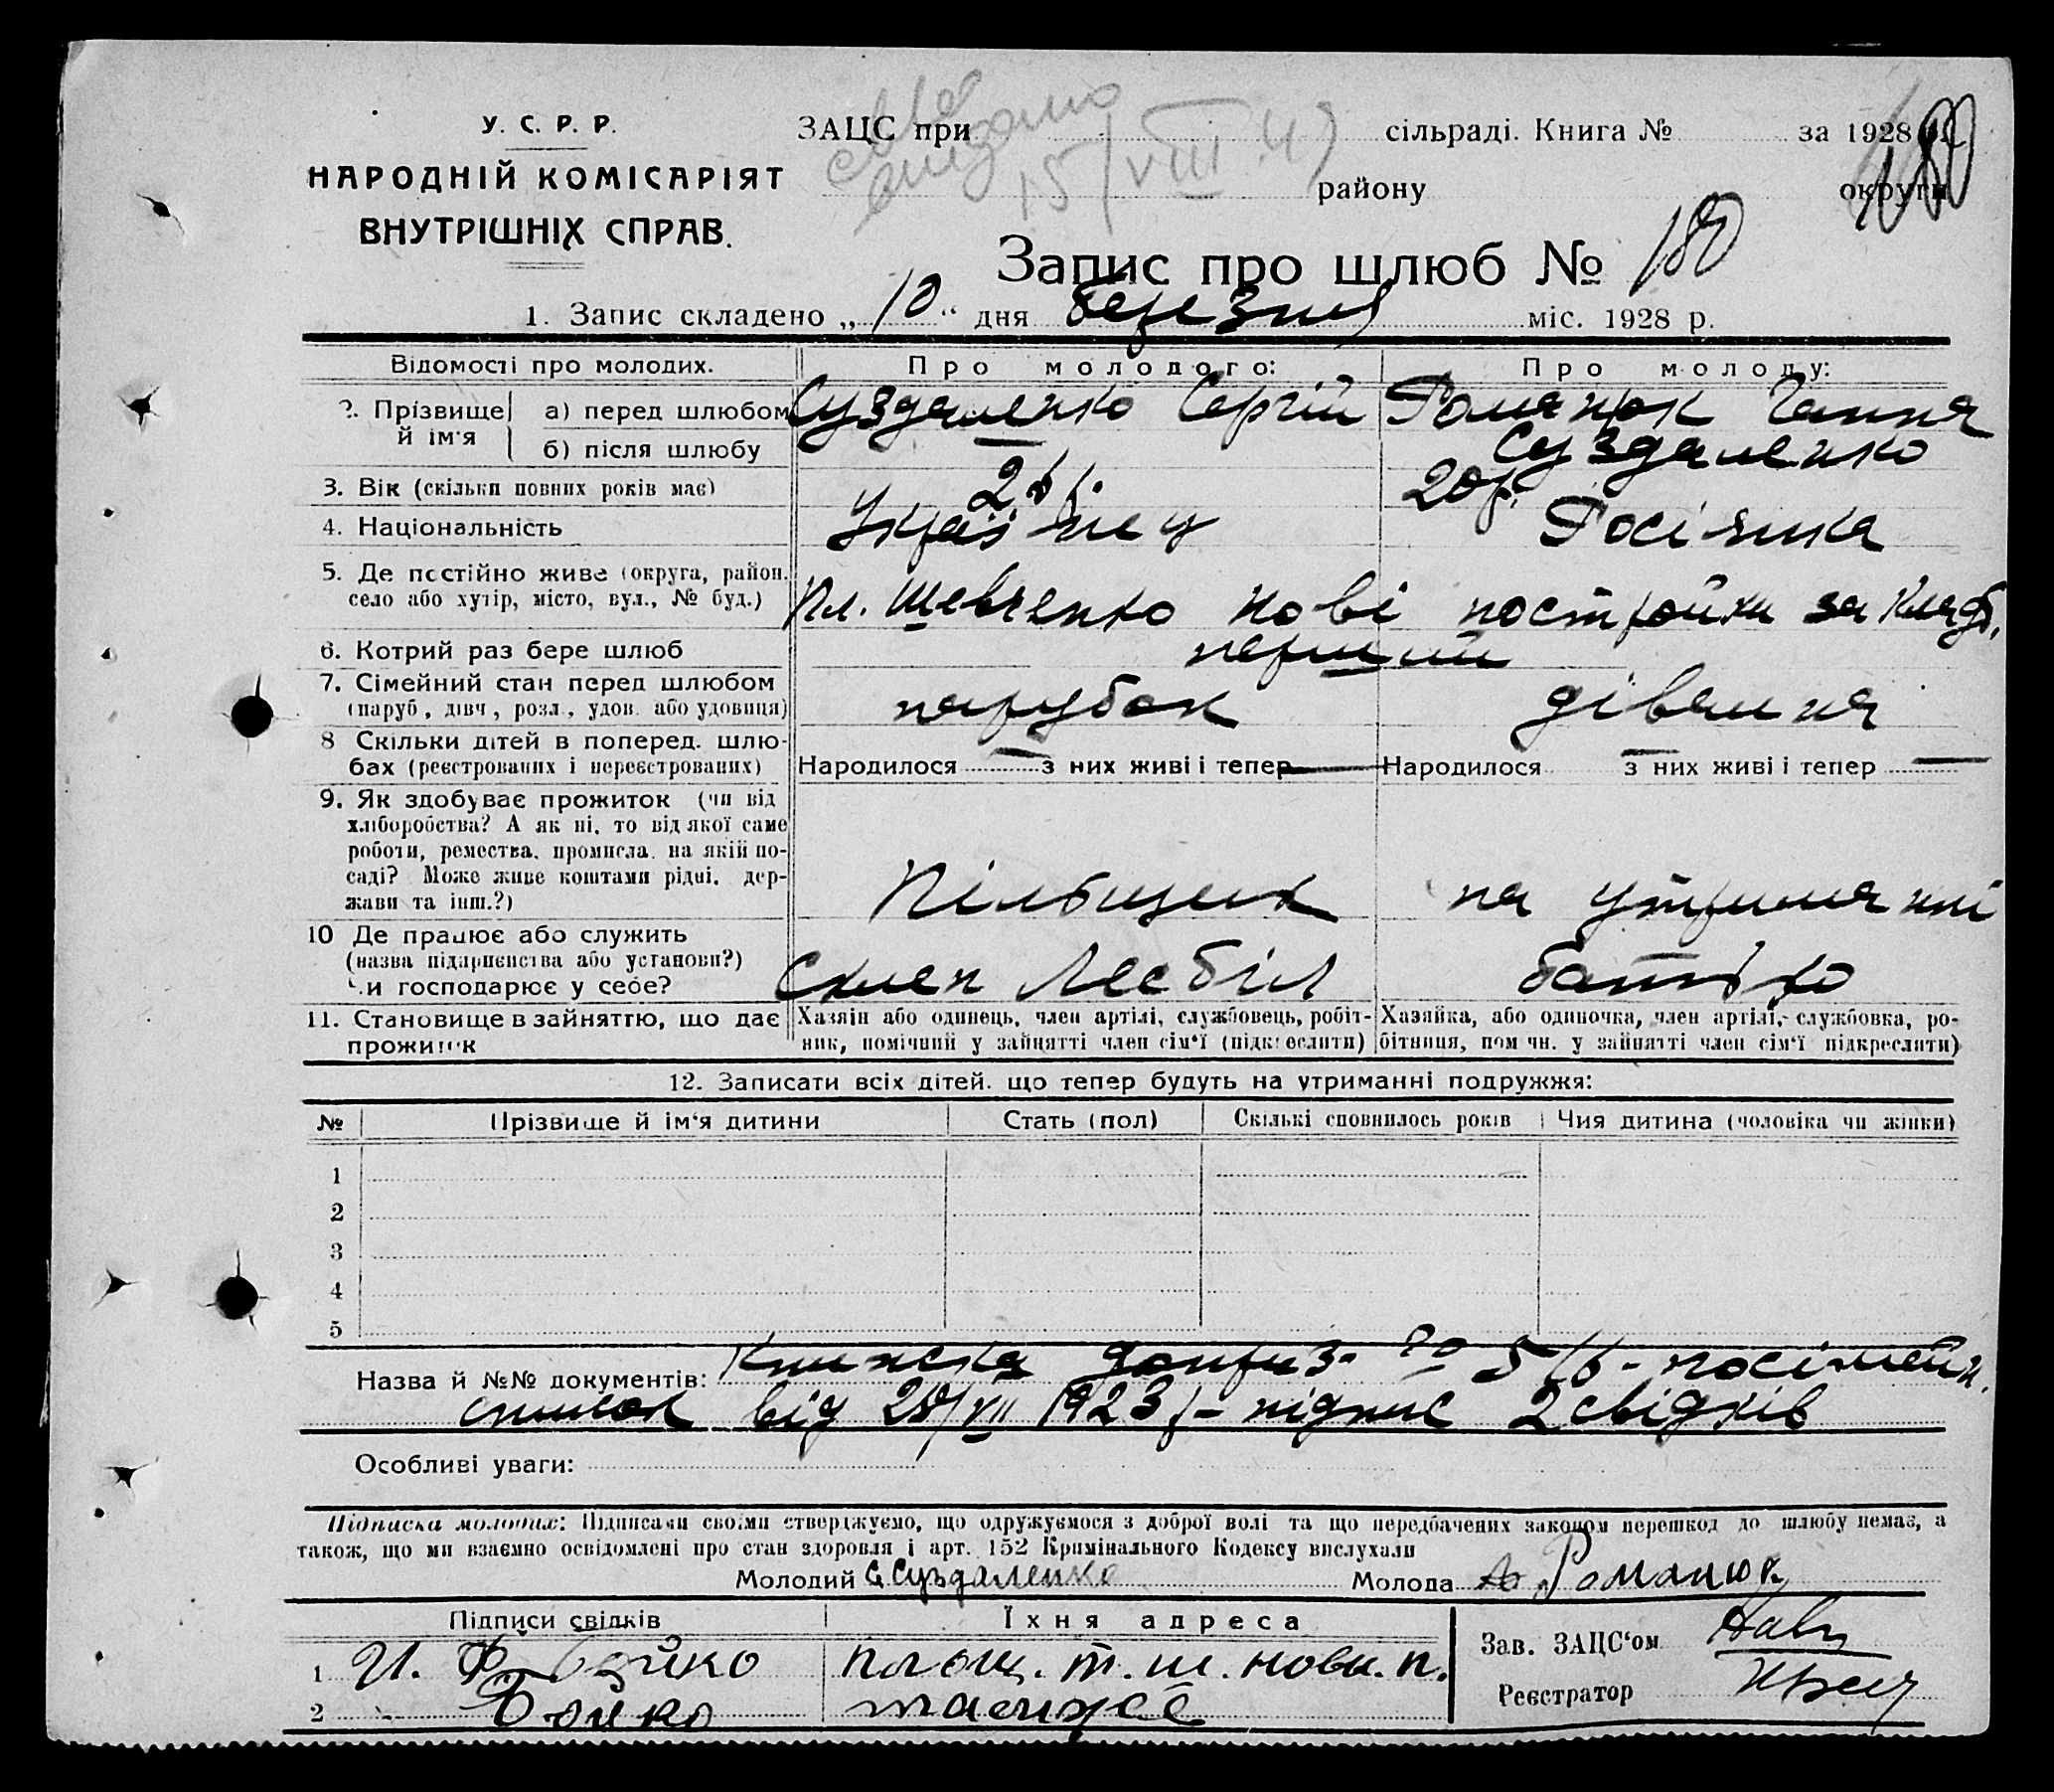 У. С. Р. Р.
НАРОДНІЙ КОМІСАРІЯТ
ВНУТРІШНІХ СПРАВ.
ЗАЦС при сільраді. Книга № за 1928 р.
району округи
15/VIII.47
180
Запис про шлюб № 180
1. Запис складено „10" дня березня міс. 1928 р.
Відомості про молодих. Про молодого: Про молоду:
2. Прізвище й ім'я а) перед шлюбом Суздаленко Сергій Романюк Ганна
б) після шлюбу Суздаленко
3. Вік (скільки повних років має) 20р.
4. Національність Українец Росіянка
5. Де постійно живе (округа, район,
село або хутір, місто, вул., № буд.) Пл. Шевченко нові постройки за кладб.
6. Котрий раз бере шлюб перший
7. Сімейний стан перед шлюбом
(паруб., дівч., розл., удов. або удовиця) парубок дівчина
8 Скільки дітей в поперед. шлю-
бах (реєстрованих і нереєстрованих) Народилося — з них живі і тепер — Народилося — з них живі і тепер —
9. Як здобуває прожиток (чи від
хліборобства? А як ні, то від якої саме
роботи, ремества, промисла, на якій по-
саді? Може живе коштами рідні, дер-
жави та інш.?) Пільщик на утриманні
10 Де працює або служить
(назва підприємства або установи?)
Чи господарює у себе? Склеп батько
11. Становище в зайняттю, що дає
прожиток
Хазяїн або одинець, член артілі, службовець, робіт-
ник, помічний у зайнятті член сім'ї (підкреслити)
Хазяйка, або одиночка, член артілі, службовка, ро-
бітниця, пом чн. у зайнятті член сім'ї підкреслити)
12. Записати всіх дітей, що тепер будуть на утриманні подружжя:
№ Прізвище й ім'я дитини Стать (пол) Скількі сповнилось років Чия дитина (чоловіка чи жінки)
1
2
3
4
5
Назва й №№ документів: Книжка доприз. посімейн.
список від VII 1923 р - підпис 2 свідків
Особливі уваги:
Підписка молодих: Підписами своїми стверджуємо, що одружуємося з доброї волі та що передбачених законом перешкод до шлюбу немає, а
також, що ми взаємно освідомлені про стан здоровля і арт. 152 Кримінального Кодексу вислухали
Молодий С Суздаленко Молода А Романюк
Підписи свідків Їхня адреса
1 И. Ф. Бойко площ. т. ш. новы. п.
2 Бойко там же
Зав. ЗАЦС'ом
Реєстратор